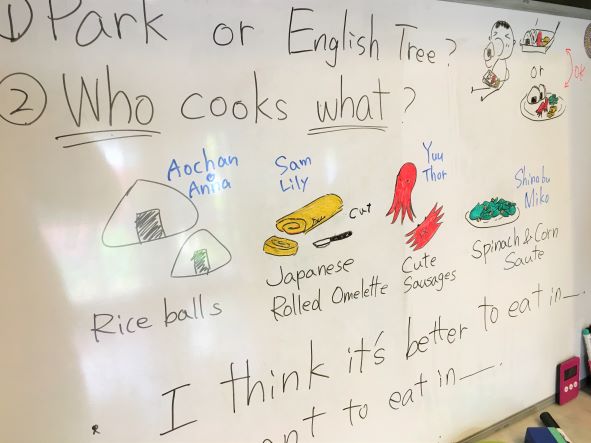 ① Park or English Tree?
OK
or
② Who cooks what?
Aochan
Anna
Rice balls
Sam
Lily
Cut
Japanese
Rolled Omelette
Yuu
Thor
Cute
Sausages
Shinobu
Miko
Spinach & Corn
Saute
I think it's better to eat in __.
to eat in __.